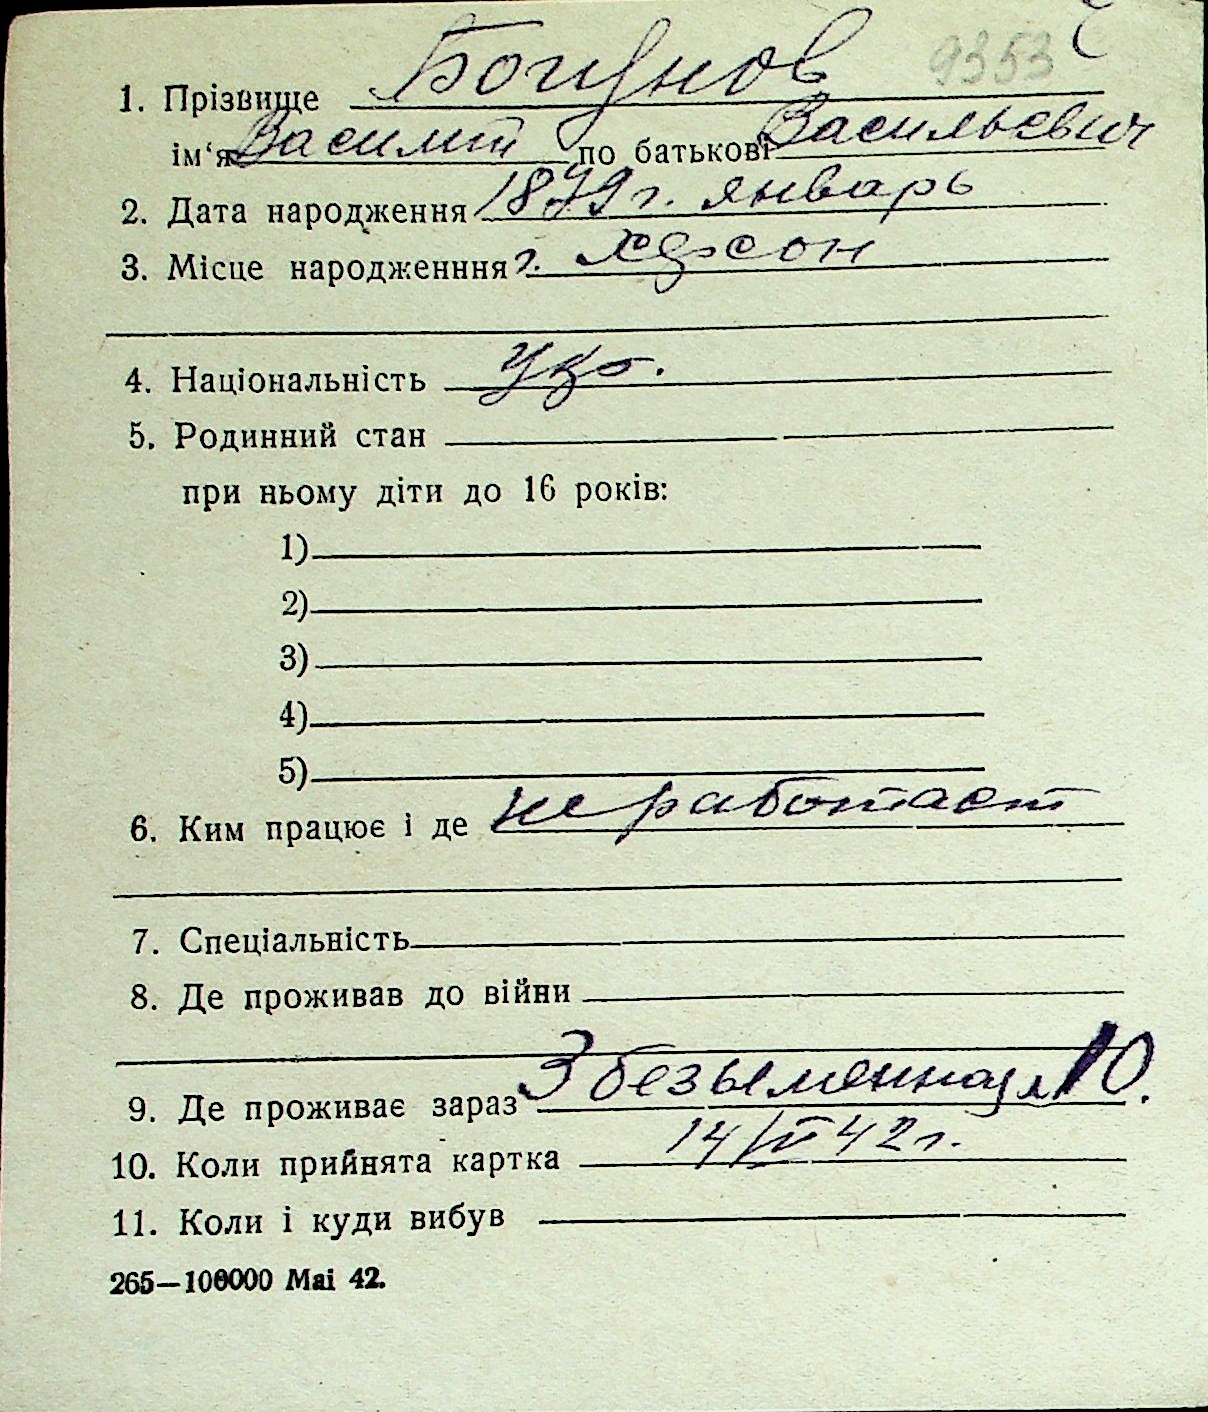 9353
1. Прізвище Богунов
ім‘я Василий по батькові Васильевич
2. Дата народження 1879 г. январь
3. Місце народженння г. Херсон
4. Національність укр.
5. Родинний стан
при ньому діти до 16 років:
1)
2)
3)
4)
5)
6. Ким працює і де не работает
7. Спеціальність
8. Де проживав до війни
9. Де проживає зараз 3 безыменная 10.
10. Коли прийнята картка 42 г.
11. Коли і куди вибув
265—100000 Mai 42.